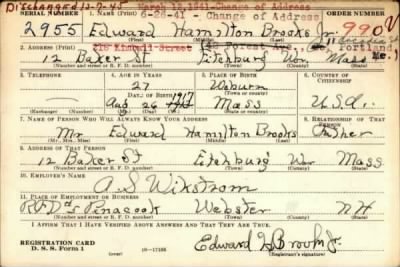 Discharged 12-7-45 March 12, 1941-Change of Address
6-26-41 - Change of Address
SERIAL NUMBER 1. NAME (Print) ORDER NUMBER
2955 Edward Hamilton Brooks Jr. 990
(First) (Middle) (Last)
216 Kimball Street Forest Ave., Portland
2. ADDRESS (Print) Me.)
12 Baker St Fitchburg Wor Mass
(Number and street or R. F. D. number) (Town) (County) (State)
3. TELEPHONE 4. AGE IN YEARS 5. PLACE OF BIRTH 6. COUNTRY OF CITIZENSHIP
27 Woburn
DATE OF BIRTH (Town or county)
Aug 26 1913 Mass U.S.A.
(Exchange) (Number) (Mo.) (Day) (Yr.) (State or country)
7. NAME OF PERSON WHO WILL ALWAYS KNOW YOUR ADDRESS 8. RELATIONSHIP OF THAT PERSON
Mr Edward Hamilton Brooks Father
(Mr., Mrs., Miss) (First) (Middle) (Last)
9. ADDRESS OF THAT PERSON
12 Baker St Fitchburg Wor Mass
(Number and street or R. F. D. number) (Town) (County) (State)
10. EMPLOYER'S NAME
A. S. Wikstrom
11. PLACE OF EMPLOYMENT OR BUSINESS
RFD Penacook Webster NH
(Number and street or R. F. D. number) (Town) (County) (State)
I AFFIRM THAT I HAVE VERIFIED ABOVE ANSWERS AND THAT THEY ARE TRUE.
REGISTRATION CARD
D. S. S. Form 1 16-17105 Edward H Brooks Jr.
(Registrant's signature)